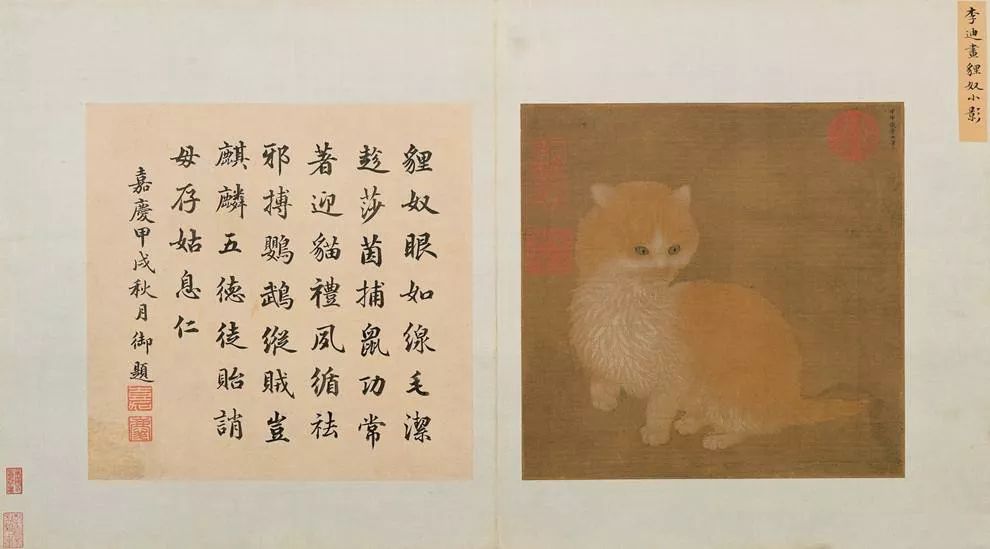 李迪畫貍奴小影
貍奴眼如線毛潔
趂莎茵捕鼠功常
著迎貓禮夙循祛
邪搏鸚鵡縱賊豈
麒麟五德徒貽誚
毋存姑息仁
嘉慶甲戌秋月御題
嘉
慶